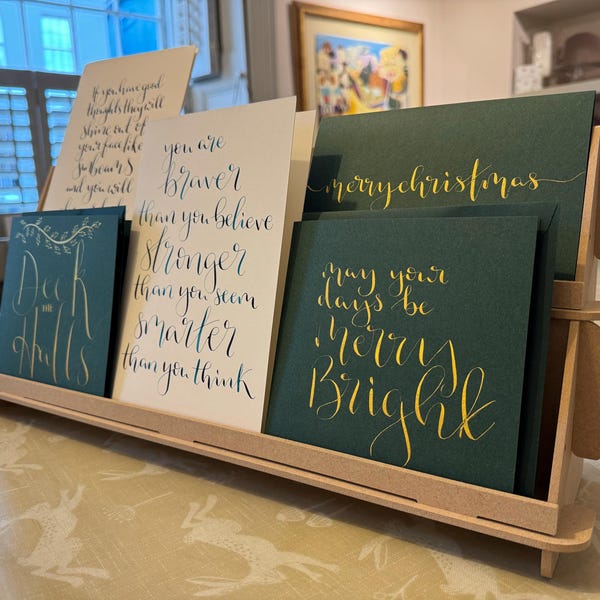 If you have good
thoughts they will
shine out of
your face like
sunbeams
and you will
you are
braver
than you believe
stronger
than you seem
smarter
than you think
merry christmas
Deck
THE
Halls
may your
days be
Merry
Bright